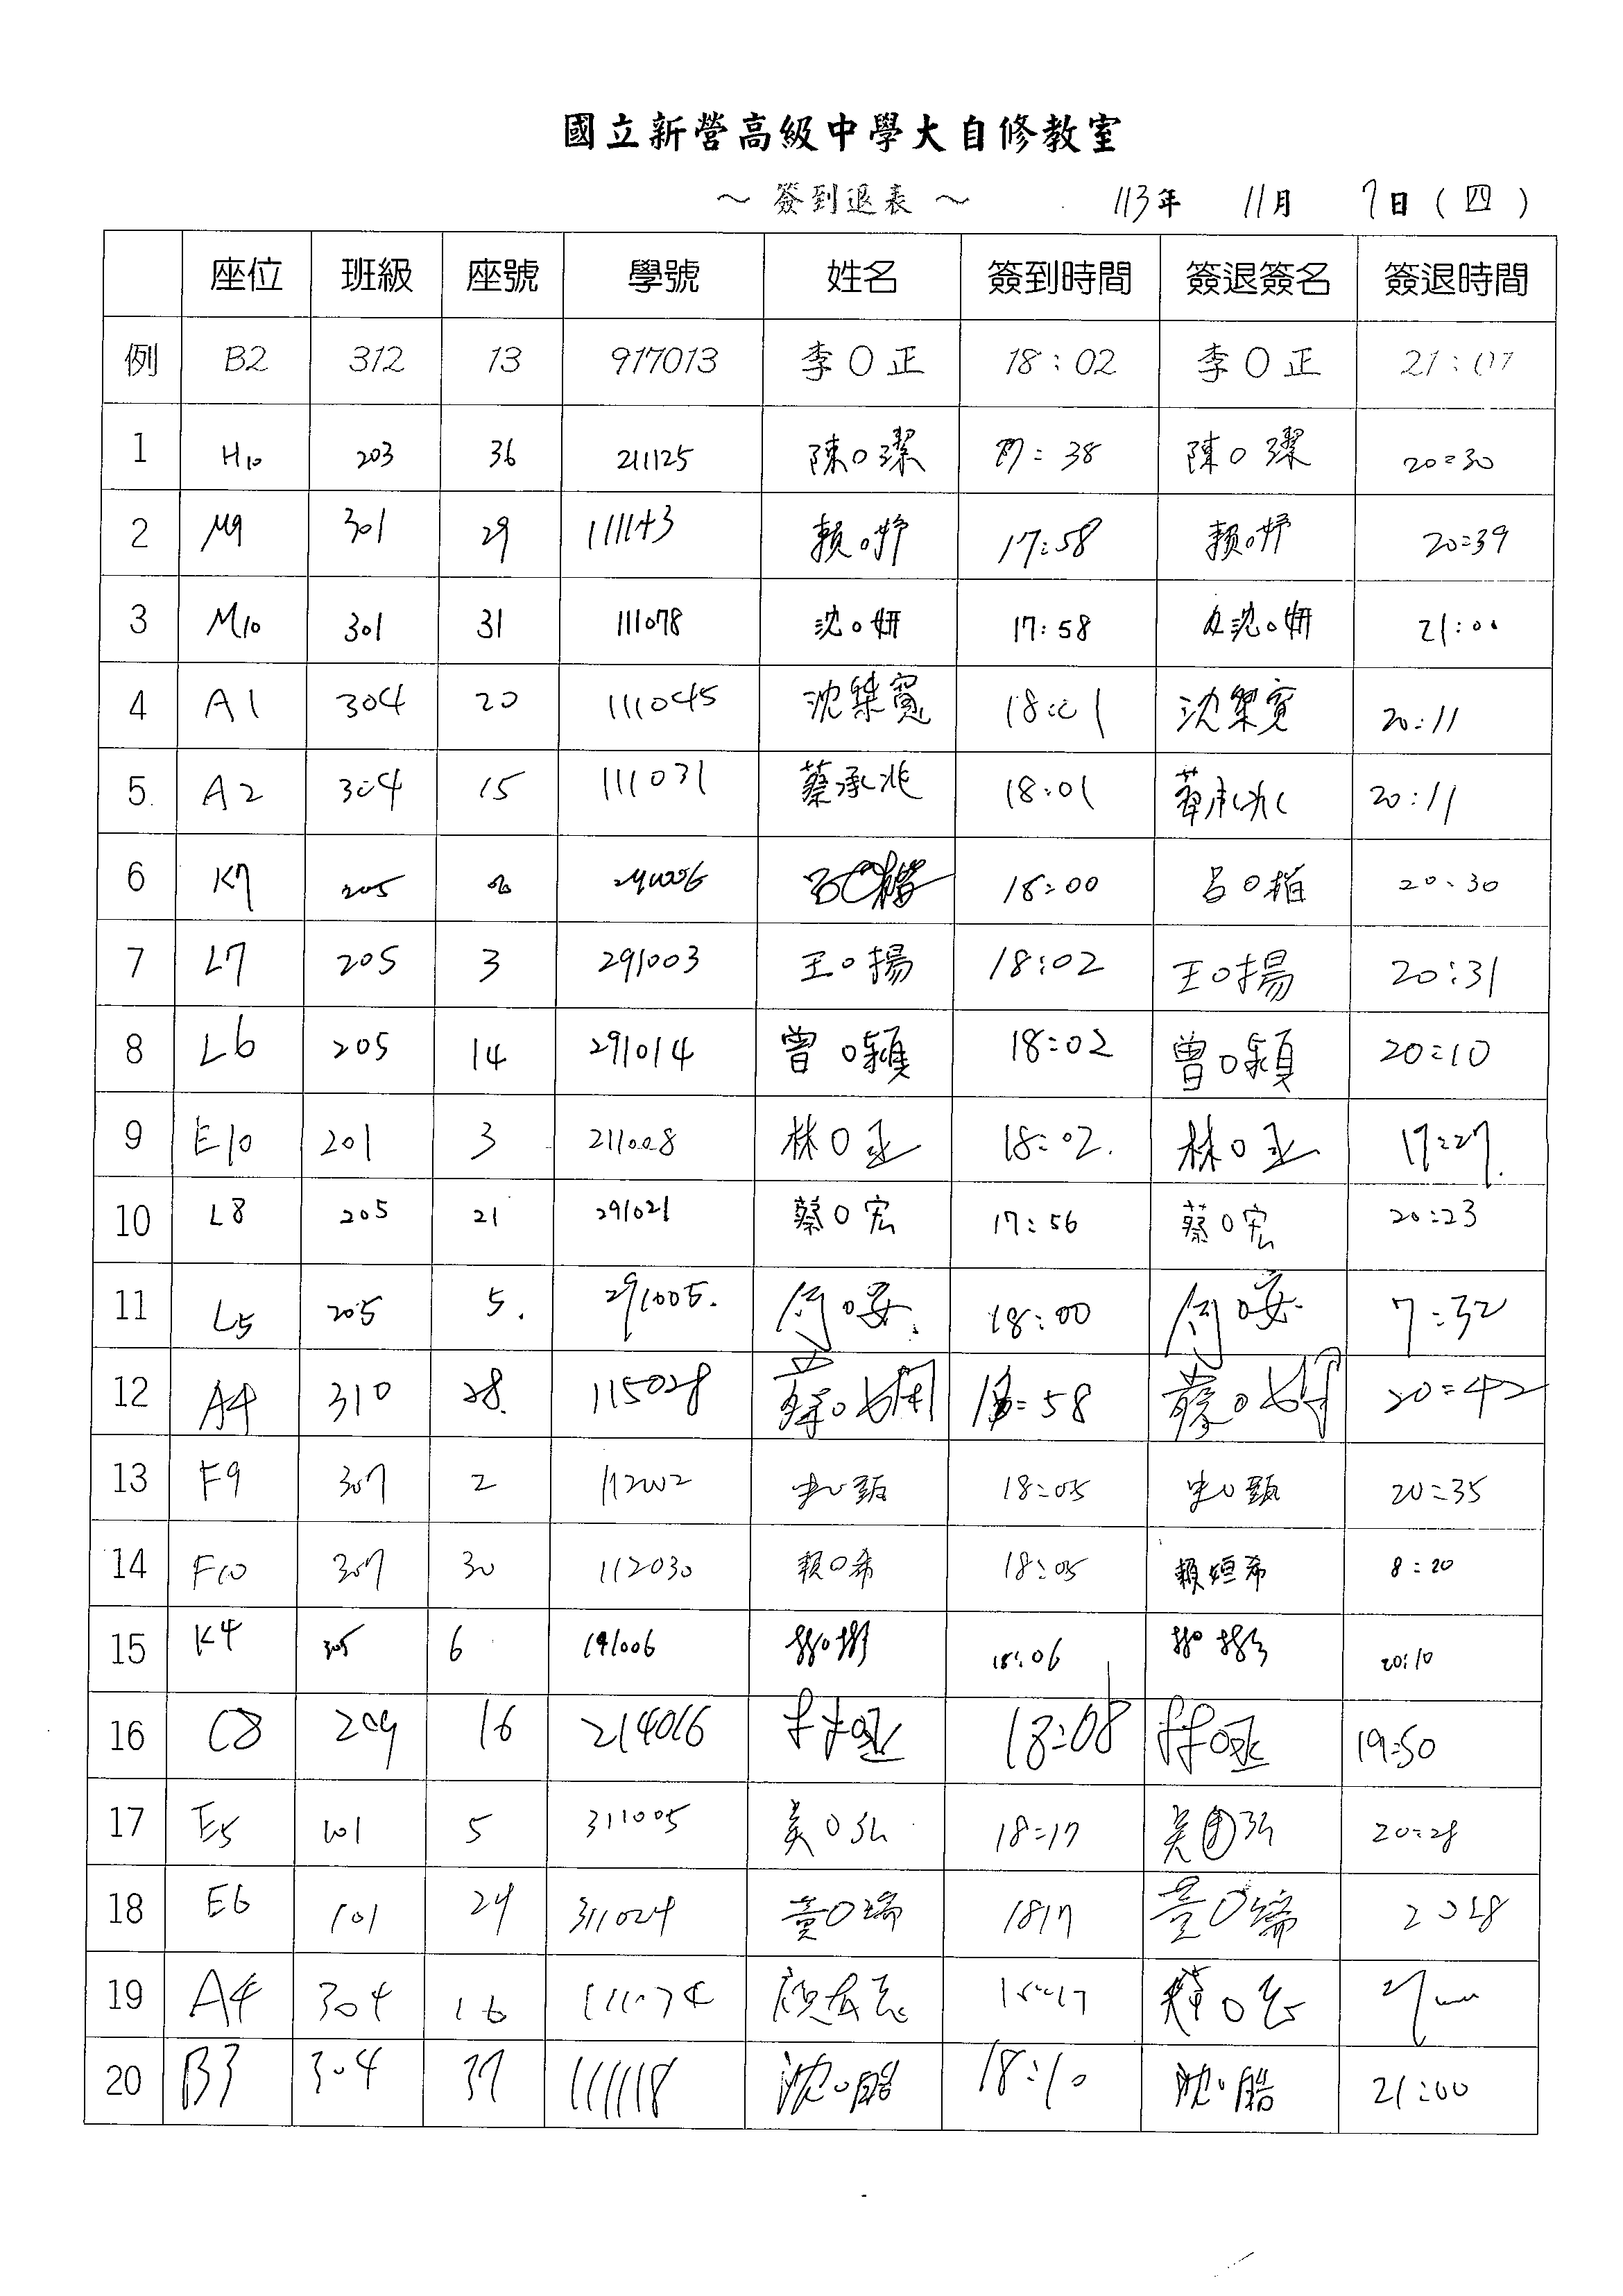 國立新營高級中學大自修教室
～ 簽到退表 ～ 113年 11月 7日 ( 四 )
座位 班級 座號 學號 姓名 簽到時間 簽退簽名 簽退時間
例 B2 312 13 917013 李O正 18:02 李O正 21:07
1 H10 203 36 211125 陳O潔 17:38 陳O潔 20:30
2 M9 301 29 111143 賴O妤 17:58 賴O妤 20:39
3 M10 301 31 111078 沈O妍 17:58 沈O妍 21:00
4 A1 304 20 111045 沈榘寬 18:01 沈榘寬 20:11
5 A2 304 15 111031 蔡承兆 18:01 20:11
6 K7 205 18:00 呂O楷 20:30
7 L7 205 3 291003 王O揚 18:02 王O揚 20:31
8 L6 205 14 291014 曾O穎 18:02 曾O穎 20:10
9 E10 201 3 211008 林O丞 18:02 林O丞 17:27
10 L8 205 21 291021 蔡O宏 17:56 蔡O宏 20:23
11 L5 205 5. 291005. 18:00 7:32
12 A4 310 28. 115028 :58 20:42
13 F9 307 2 112002 18:05 20:35
14 F10 307 30 112030 賴O希 18:05 賴姮希 8:20
15 K4 305 6 191006 18:06 20:10
16 C8 209 16 214016 18:08 19:50
17 E5 101 5 311005 吳O弘 18:17 20:28
18 E6 101 24 311024 黃O瑞 1817 黃O瑞 2028
19 A4 304 16 111074
20 B3 304 37 111118 沈O皓 18:10 沈O皓 21:00